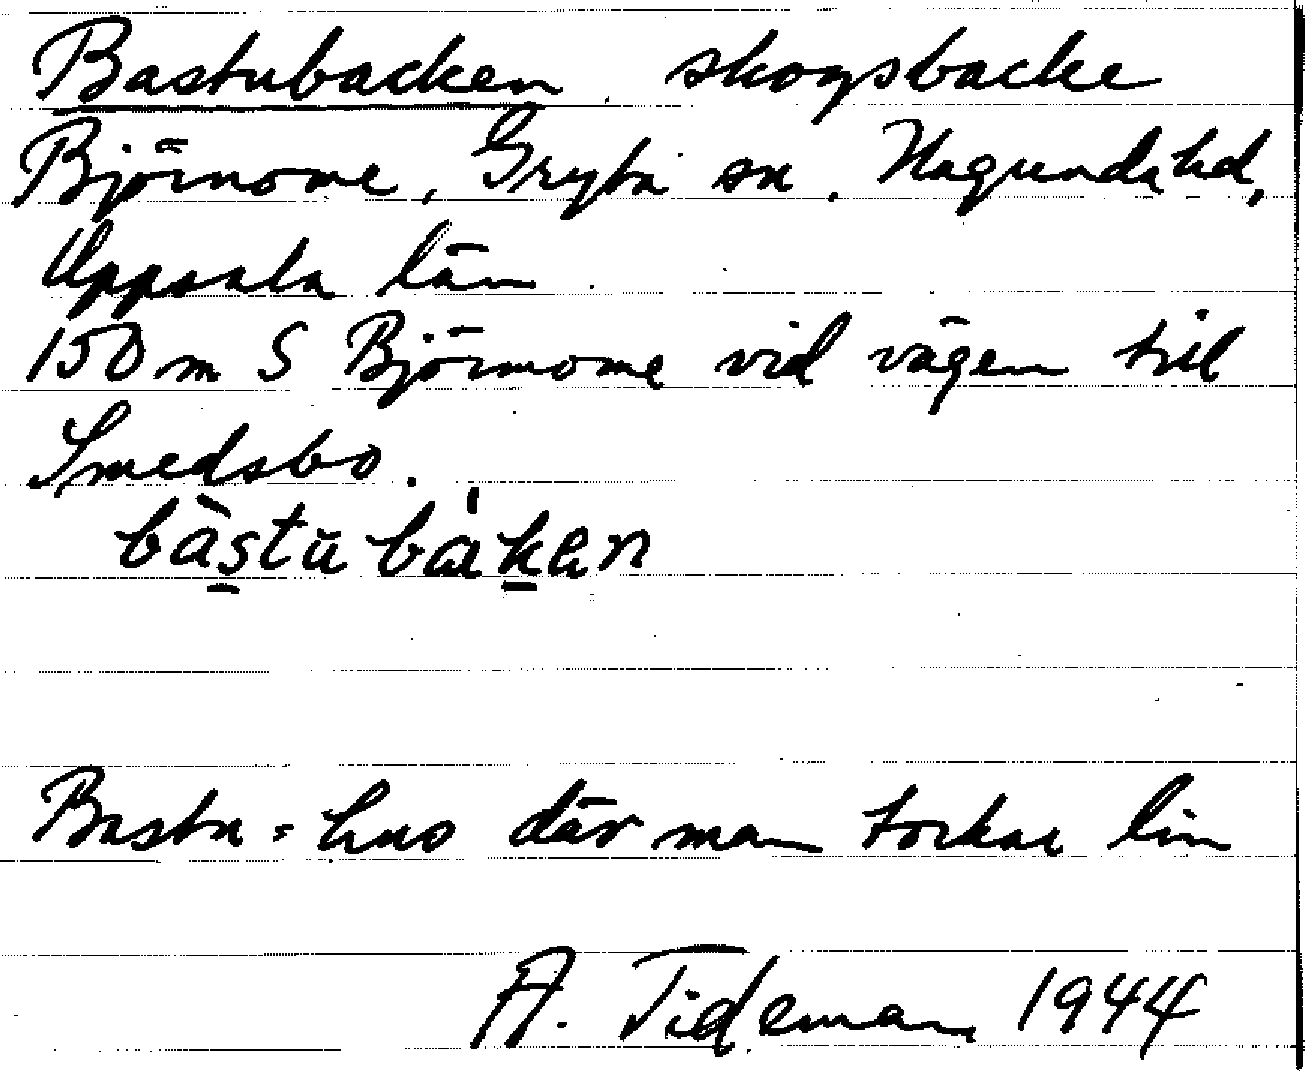 Bastubacken, skogsbacke
Björnome, Gryta sn, Hagunda hd,
Uppsala län.
150 m S Björnome vid vägen till
Smedsbo.
bàs̠tŭ bák̠en
Bastu = hus där man torkar lin
A. Tideman 1944